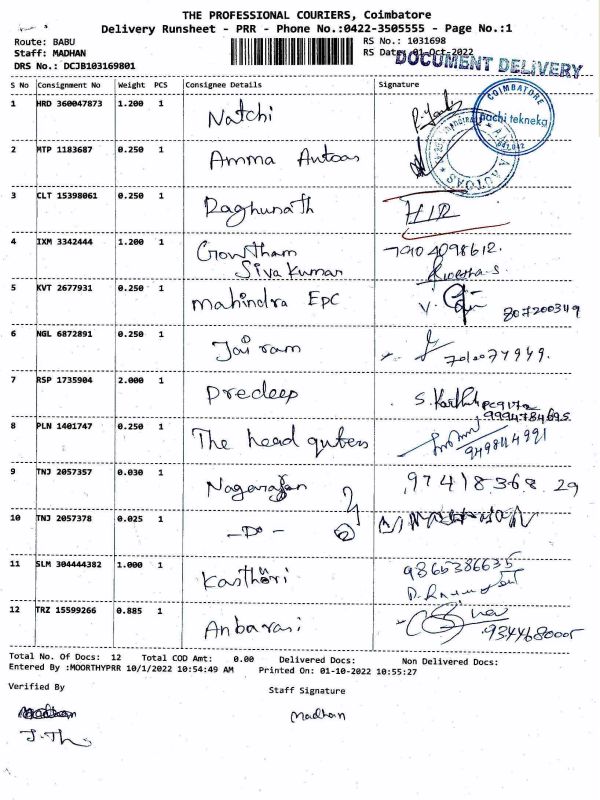 THE PROFESSIONAL COURIERS, Coimbatore
Delivery Runsheet - PRR - Phone No.:0422-3505555 - Page No.:1
Route: BABU
RS No.: 1031698
Staff: MADHAN
RS Date: 01-Oct-2022
DRS No.: DCJB103169801
DOCUMENT DELIVERY
S No Consignment No Weight PCS Consignee Details Signature
COIMBATORE
pachi teknekg
1 HRD 360047873 1.200 1 Natchi
2 MTP 1183687 0.250 1 Amma Autoas
3 CLT 15398061 0.250 1 Raghunath
4 IXM 3342444 1.200 1 Gowtham 7910 4098612.
Siva Kumar
5 KVT 2677931 0.250 1 mahindra EPC V.
807200349
6 NGL 6872891 0.250 1 Jai ram
7 RSP 1735904 2.000 1 Predeep S. Karthik
8 PLN 1401747 0.250 1 The head quters
9 TNJ 2057357 0.030 1 Nagarajan 97418368 29
10 TNJ 2057378 0.025 1 - Do -
11 SLM 304444382 1.000 1 Kasthuri 9865386635
12 TRZ 15599266 0.885 1 Anbarasi
Total No. Of Docs: 12 Total COD Amt: 0.00 Delivered Docs: Non Delivered Docs:
Entered By :MOORTHYPRR 10/1/2022 10:54:49 AM Printed On: 01-10-2022 10:55:27
Verified By Staff Signature
Madhan